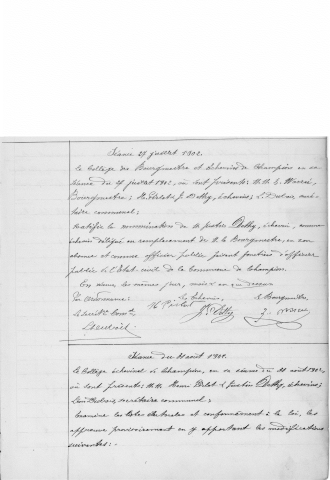 Séance 27 juillet 1902.
Le Collège des Bourgmestre et Echevins de Champion en sa
séance du 27 juillet 1902, où sont présents: M.M. E.
Bourgmestre; H. Pirlot J. Delhy, échevins; L. secré-
taire communal;
Ratifie la nomination de M. Justin Delhy, échevin, comme
échevin délégué en remplacement de M. le Bourgmestre, en son
absence et comme officier public faisant fonctions d'officier
public de l'Etat-civil de la Commune de Champion.
En séance les mêmes jour, mois et an que dessus
Par ordonnance: Les Echevins, Le Bourgmestre,
Le Secrét. Comm. H. Pirlot
J. Delhy
Séance du 11 août 1902.
Le Collège échevinal de Champion, en sa séance du 11 août 1902,
où sont présents: M.M. Henri Pirlot & Justin Delhy, échevins;
secrétaire communal;
Examine les listes électorales et conformément à la loi, les
approuve provisoirement en y apportant les modifications
suivantes: -